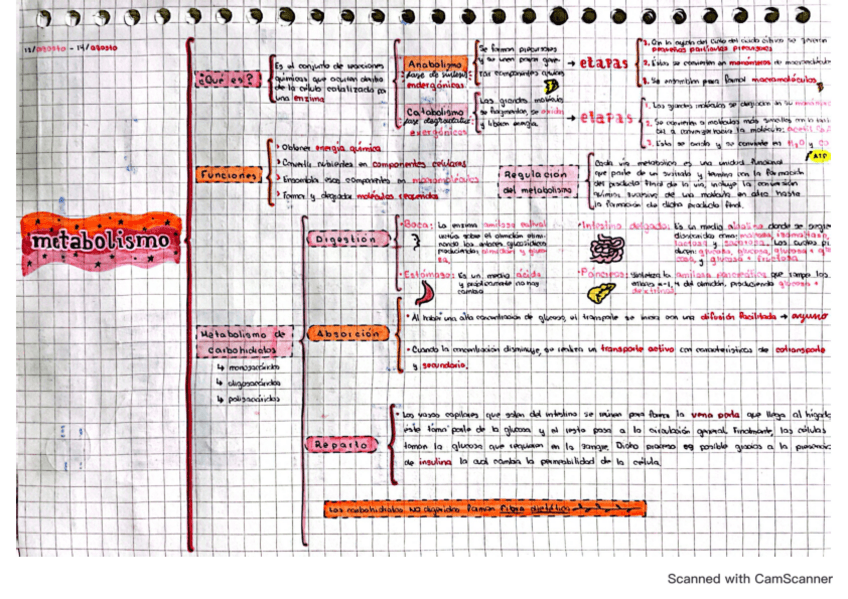 11/agosto - 14/agosto
metabolismo
¿Qué es?
Es el conjunto de reacciones
químicas que ocurren dentro
de la célula catalizada por
una enzima
Anabolismo
fase de síntesis
endergónicas
Se forman precursores
y se unen para
componentes
→ etapas
pequeñas partículas precursores
2. Estos se convierten en monómeros de
3. Se ensamblan para formar macromoléculas
Catabolismo
fase degradativa
exergónicas
Las grandes moléculas
se fragmentan, se oxidan
y liberan energía.
→ etapas
1. Las grandes moléculas se degradan en su
2. Se convierten a moléculas más simples
la molécula: acetil
3. Esta se oxida y se convierte en H₂O y
ATP
Funciones
> Obtener energía química
> Convertir nutrientes en componentes celulares
> Ensambla esos componentes en macromoléculas
> Formar y degradar moléculas requeridas
Regulación
del metabolismo
Cada vía metabólica es una unidad funcional
que parte de un sustrato y termina con la formación
del producto final de la vía, incluye la conversión
química sucesiva de una molécula en otra hasta
la formación de dicho producto final.
Metabolismo de
carbohidratos
↳ monosacáridos
↳ oligosacáridos
↳ polisacáridos
Digestión
• Boca: La enzima amilasa salival
actúa sobre el almidón
los enlaces glucosídicos
produciendo almidón y
• Estómago: Es un medio ácido
y prácticamente no hay
cambio
• Intestino delgado: Es un medio alcalino donde se
disacáridos como: maltosa, isomaltosa,
lactosa y sacarosa. Los cuales
glucosa, glucosa +
y glucosa + fructosa.
• Páncreas: Sintetiza la amilasa pancreática que rompe los
enlaces α-1,4 del almidón, produciendo glucosa +
dextrinas
Absorción
• Al haber una alta concentración de glucosa, el transporte se inicia con una difusión facilitada → ayuno
• Cuando la concentración disminuye, se realiza un transporte activo con características de cotransporte
y secundario.
Reparto
• Los vasos capilares que salen del intestino se reúnen para formar la vena porta que llega al hígado
éste toma parte de la glucosa y el resto pasa a la circulación general. Finalmente, las células
toman la glucosa que requieren en la sangre. Dicho proceso es posible gracias a la presencia
de insulina la cual cambia la permeabilidad de la célula.
Los carbohidratos NO digeridos forman Fibra dietética
Scanned with CamScanner